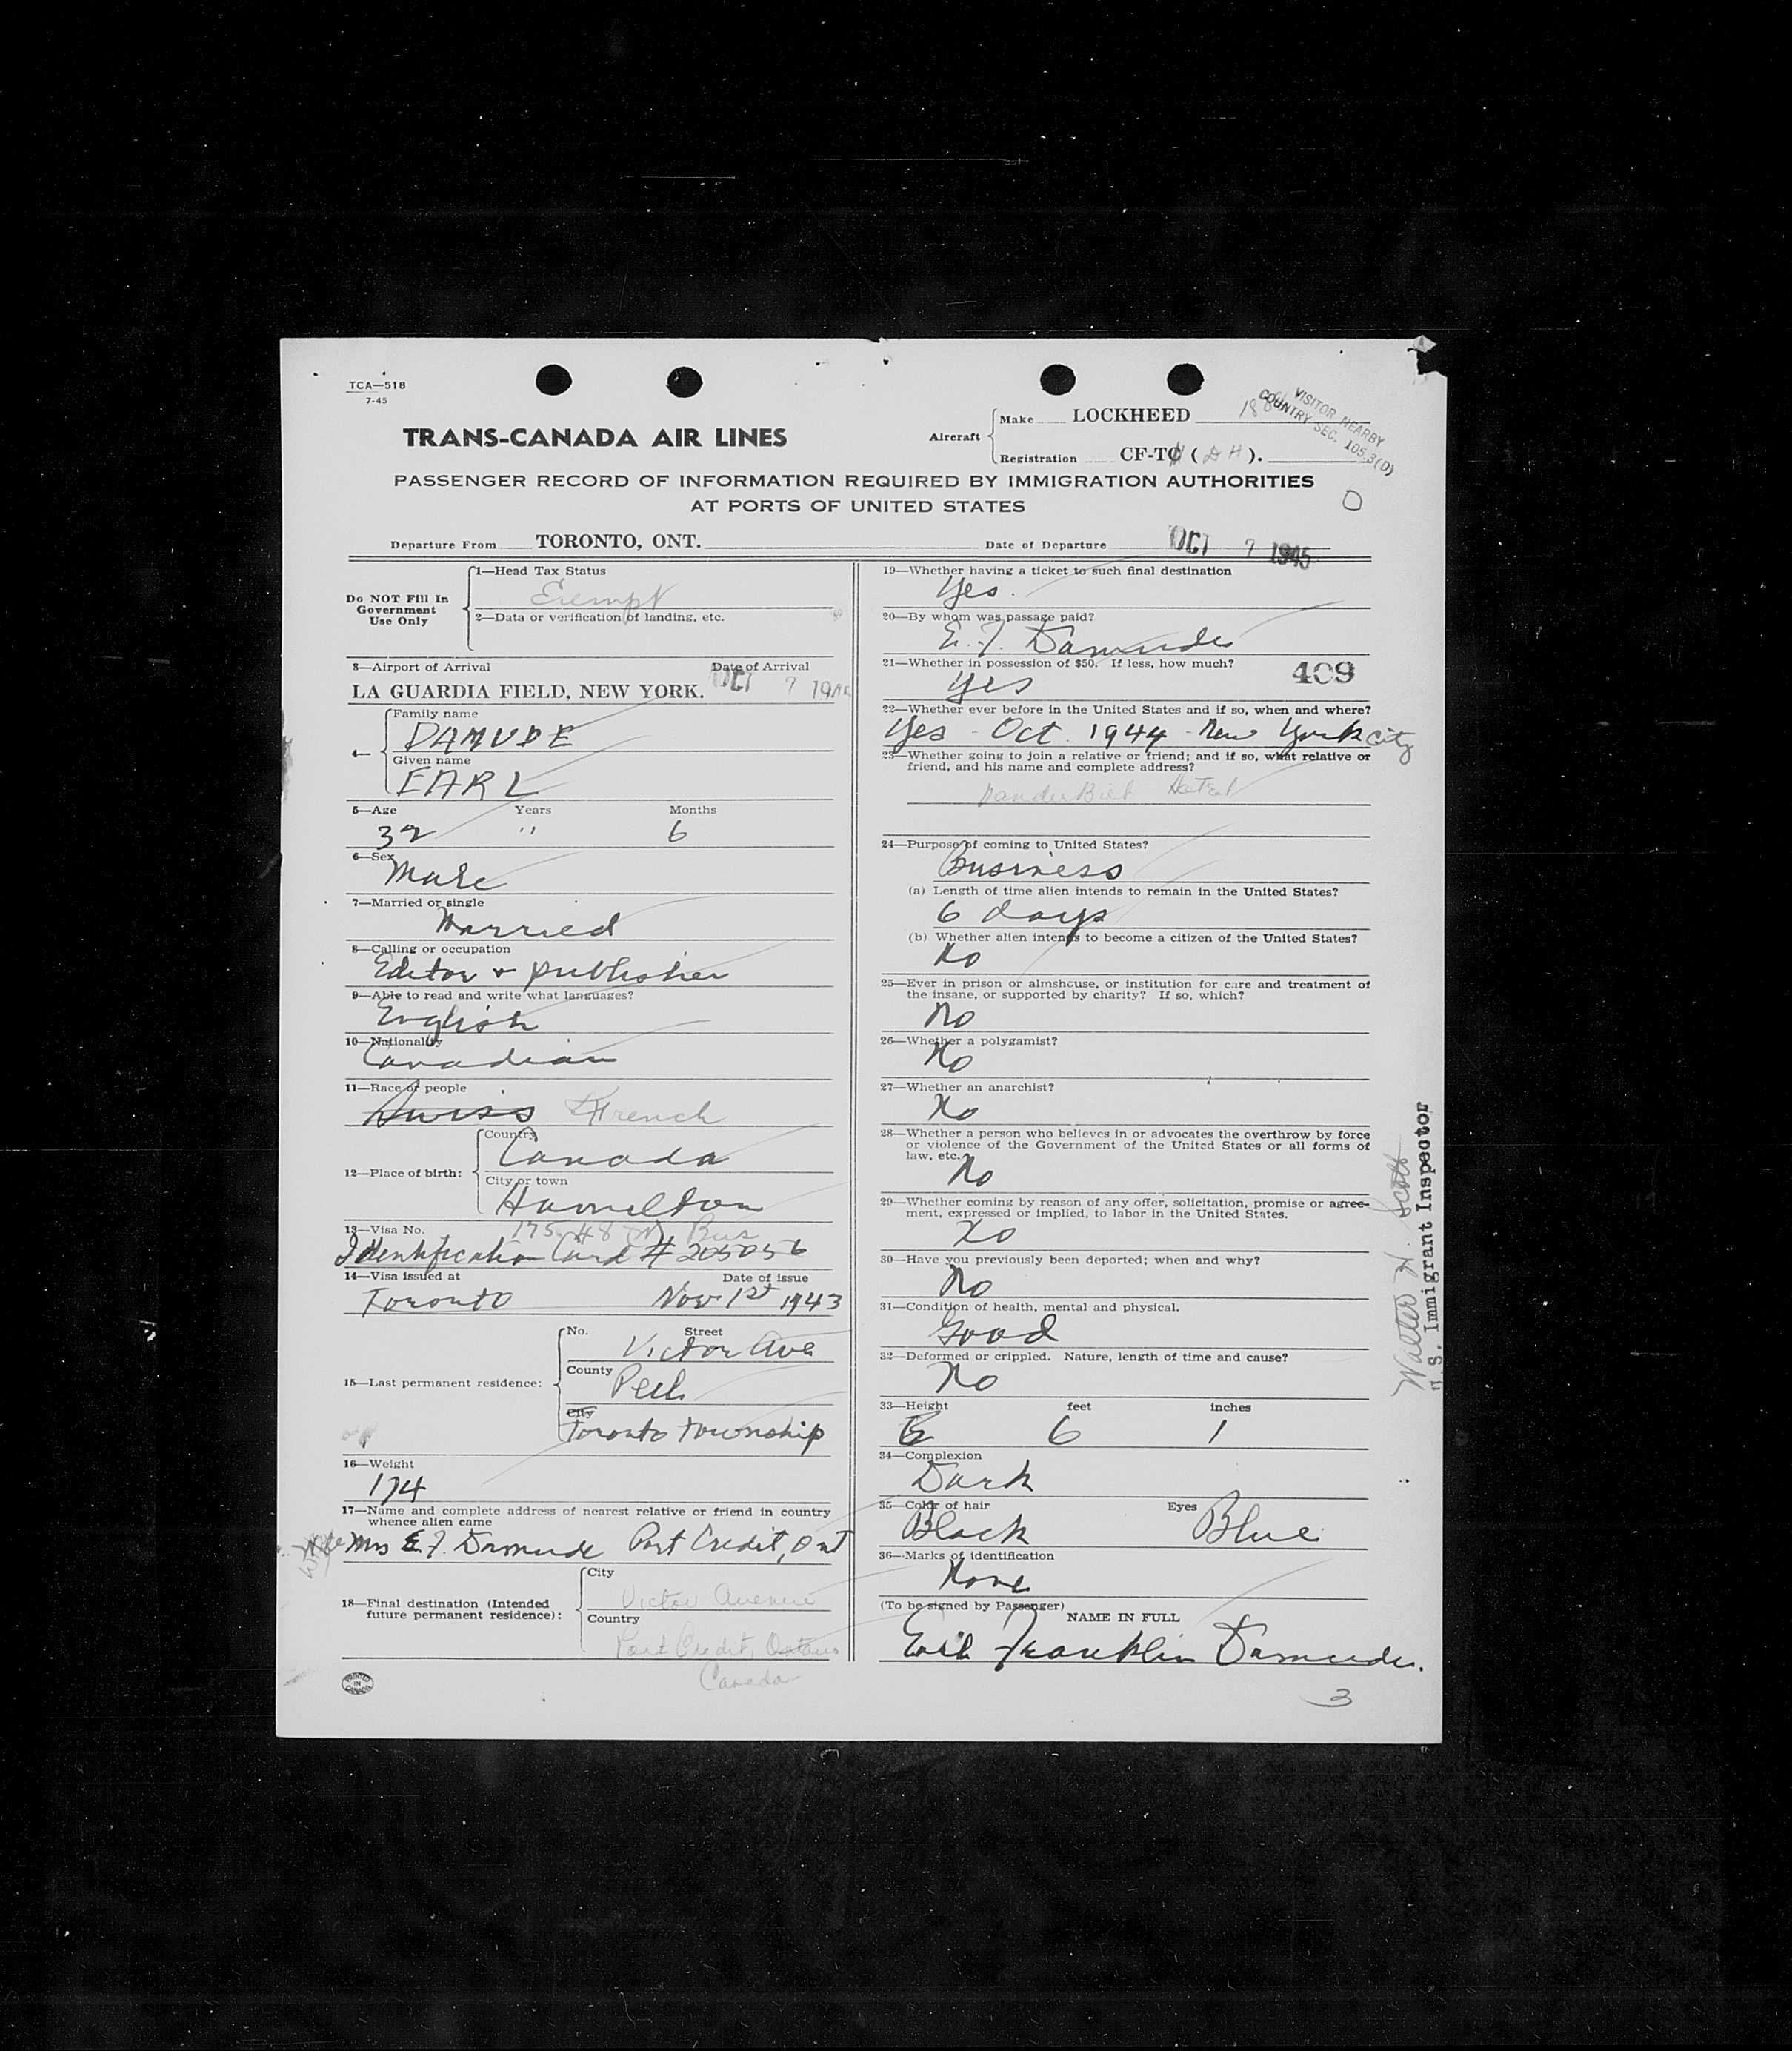 TCA—518
7-45
TRANS-CANADA AIR LINES
Aircraft
Make LOCKHEED
Registration CF-TC (DH).
VISITOR NEARBY
COUNTRY SEC. 105.3(D)
PASSENGER RECORD OF INFORMATION REQUIRED BY IMMIGRATION AUTHORITIES
AT PORTS OF UNITED STATES
O
Departure From TORONTO, ONT.
Date of Departure OCT 7 1945
Do NOT Fill In
Government
Use Only
1—Head Tax Status
Exempt
2—Data or verification of landing, etc.
3—Airport of Arrival Date of Arrival
LA GUARDIA FIELD, NEW YORK. OCT 7 1945
4—
Family name
DAMUDE
Given name
EARL
5—Age Years Months
32 " 6
6—Sex
Male
7—Married or single
Married
8—Calling or occupation
Editor & publisher
9—Able to read and write what languages?
English
10—Nationality
Canadian
11—Race of people
Swiss French
12—Place of birth:
Country
Canada
City or town
Hamilton
13—Visa No.
Identification Card # 205056
14—Visa issued at Date of issue
Toronto Nov 1st 1943
15—Last permanent residence:
No. Street
Victor Ave
County
Peel
City
Toronto Township
16—Weight
174
17—Name and complete address of nearest relative or friend in country
whence alien came
Wife Mrs E. F. Damude Port Credit, Ont
18—Final destination (Intended
future permanent residence):
City
Victor Avenue
Country
Port Credit, Ontario
Canada
PRINTED
IN
CANADA
19—Whether having a ticket to such final destination
Yes.
20—By whom was passage paid?
E. F. Damude
21—Whether in possession of $50. If less, how much?
Yes
409
22—Whether ever before in the United States and if so, when and where?
Yes - Oct. 1944 - New York City
23—Whether going to join a relative or friend; and if so, what relative or
friend, and his name and complete address?
VanderBilt Hotel
24—Purpose of coming to United States?
Business
(a) Length of time alien intends to remain in the United States?
6 days
(b) Whether alien intends to become a citizen of the United States?
No
25—Ever in prison or almshouse, or institution for care and treatment of
the insane, or supported by charity? If so, which?
No
26—Whether a polygamist?
No
27—Whether an anarchist?
No
28—Whether a person who believes in or advocates the overthrow by force
or violence of the Government of the United States or all forms of
law, etc.
No
29—Whether coming by reason of any offer, solicitation, promise or agree-
ment, expressed or implied, to labor in the United States.
No
30—Have you previously been deported; when and why?
No
31—Condition of health, mental and physical.
Good
32—Deformed or crippled. Nature, length of time and cause?
No
33—Height feet inches
6 1
34—Complexion
Dark
35—Color of hair Eyes
Black Blue
36—Marks of identification
None
(To be signed by Passenger)
NAME IN FULL
Earl Franklin Damude.
3
Walter H. Scott
U. S. Immigrant Inspector